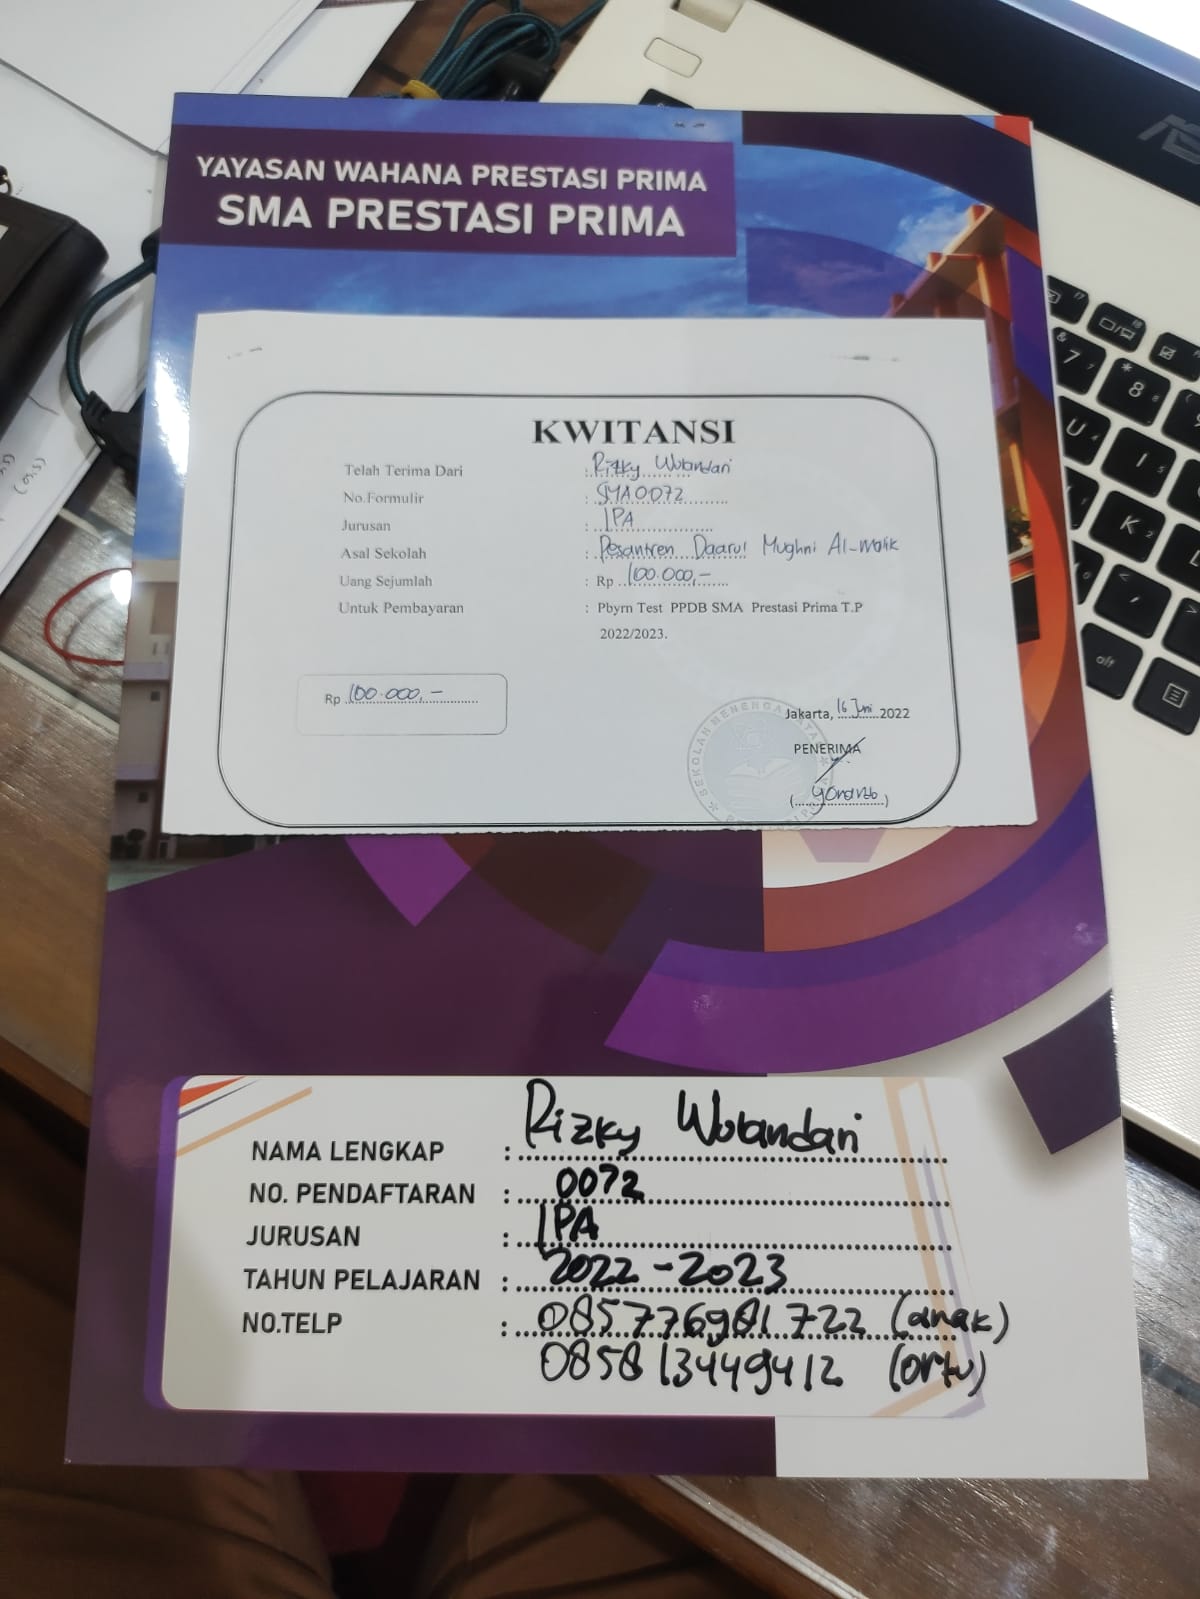 YAYASAN WAHANA PRESTASI PRIMA
SMA PRESTASI PRIMA
KWITANSI
Telah Terima Dari : Rizky Wulandari
No.Formulir : SMA0072
Jurusan : IPA
Asal Sekolah : Pesantren Daarul Mughni Al-Malik
Uang Sejumlah : Rp 100.000,-
Untuk Pembayaran : Pbyrn Test PPDB SMA Prestasi Prima T.P
2022/2023.
Rp 100.000,-
Jakarta, 16 Juni 2022
PENERIMA
SEKOLAH MENENGAH ATAS
NAMA LENGKAP : Rizky Wulandari
NO. PENDAFTARAN : 0072
JURUSAN : IPA
TAHUN PELAJARAN : 2022-2023
NO.TELP : 085776981722 (anak)
0858 13449412 (ortu)